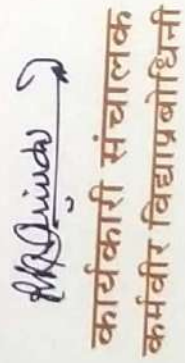 कार्यकारी संचालक
कर्मवीर विद्याप्रबोधिनी